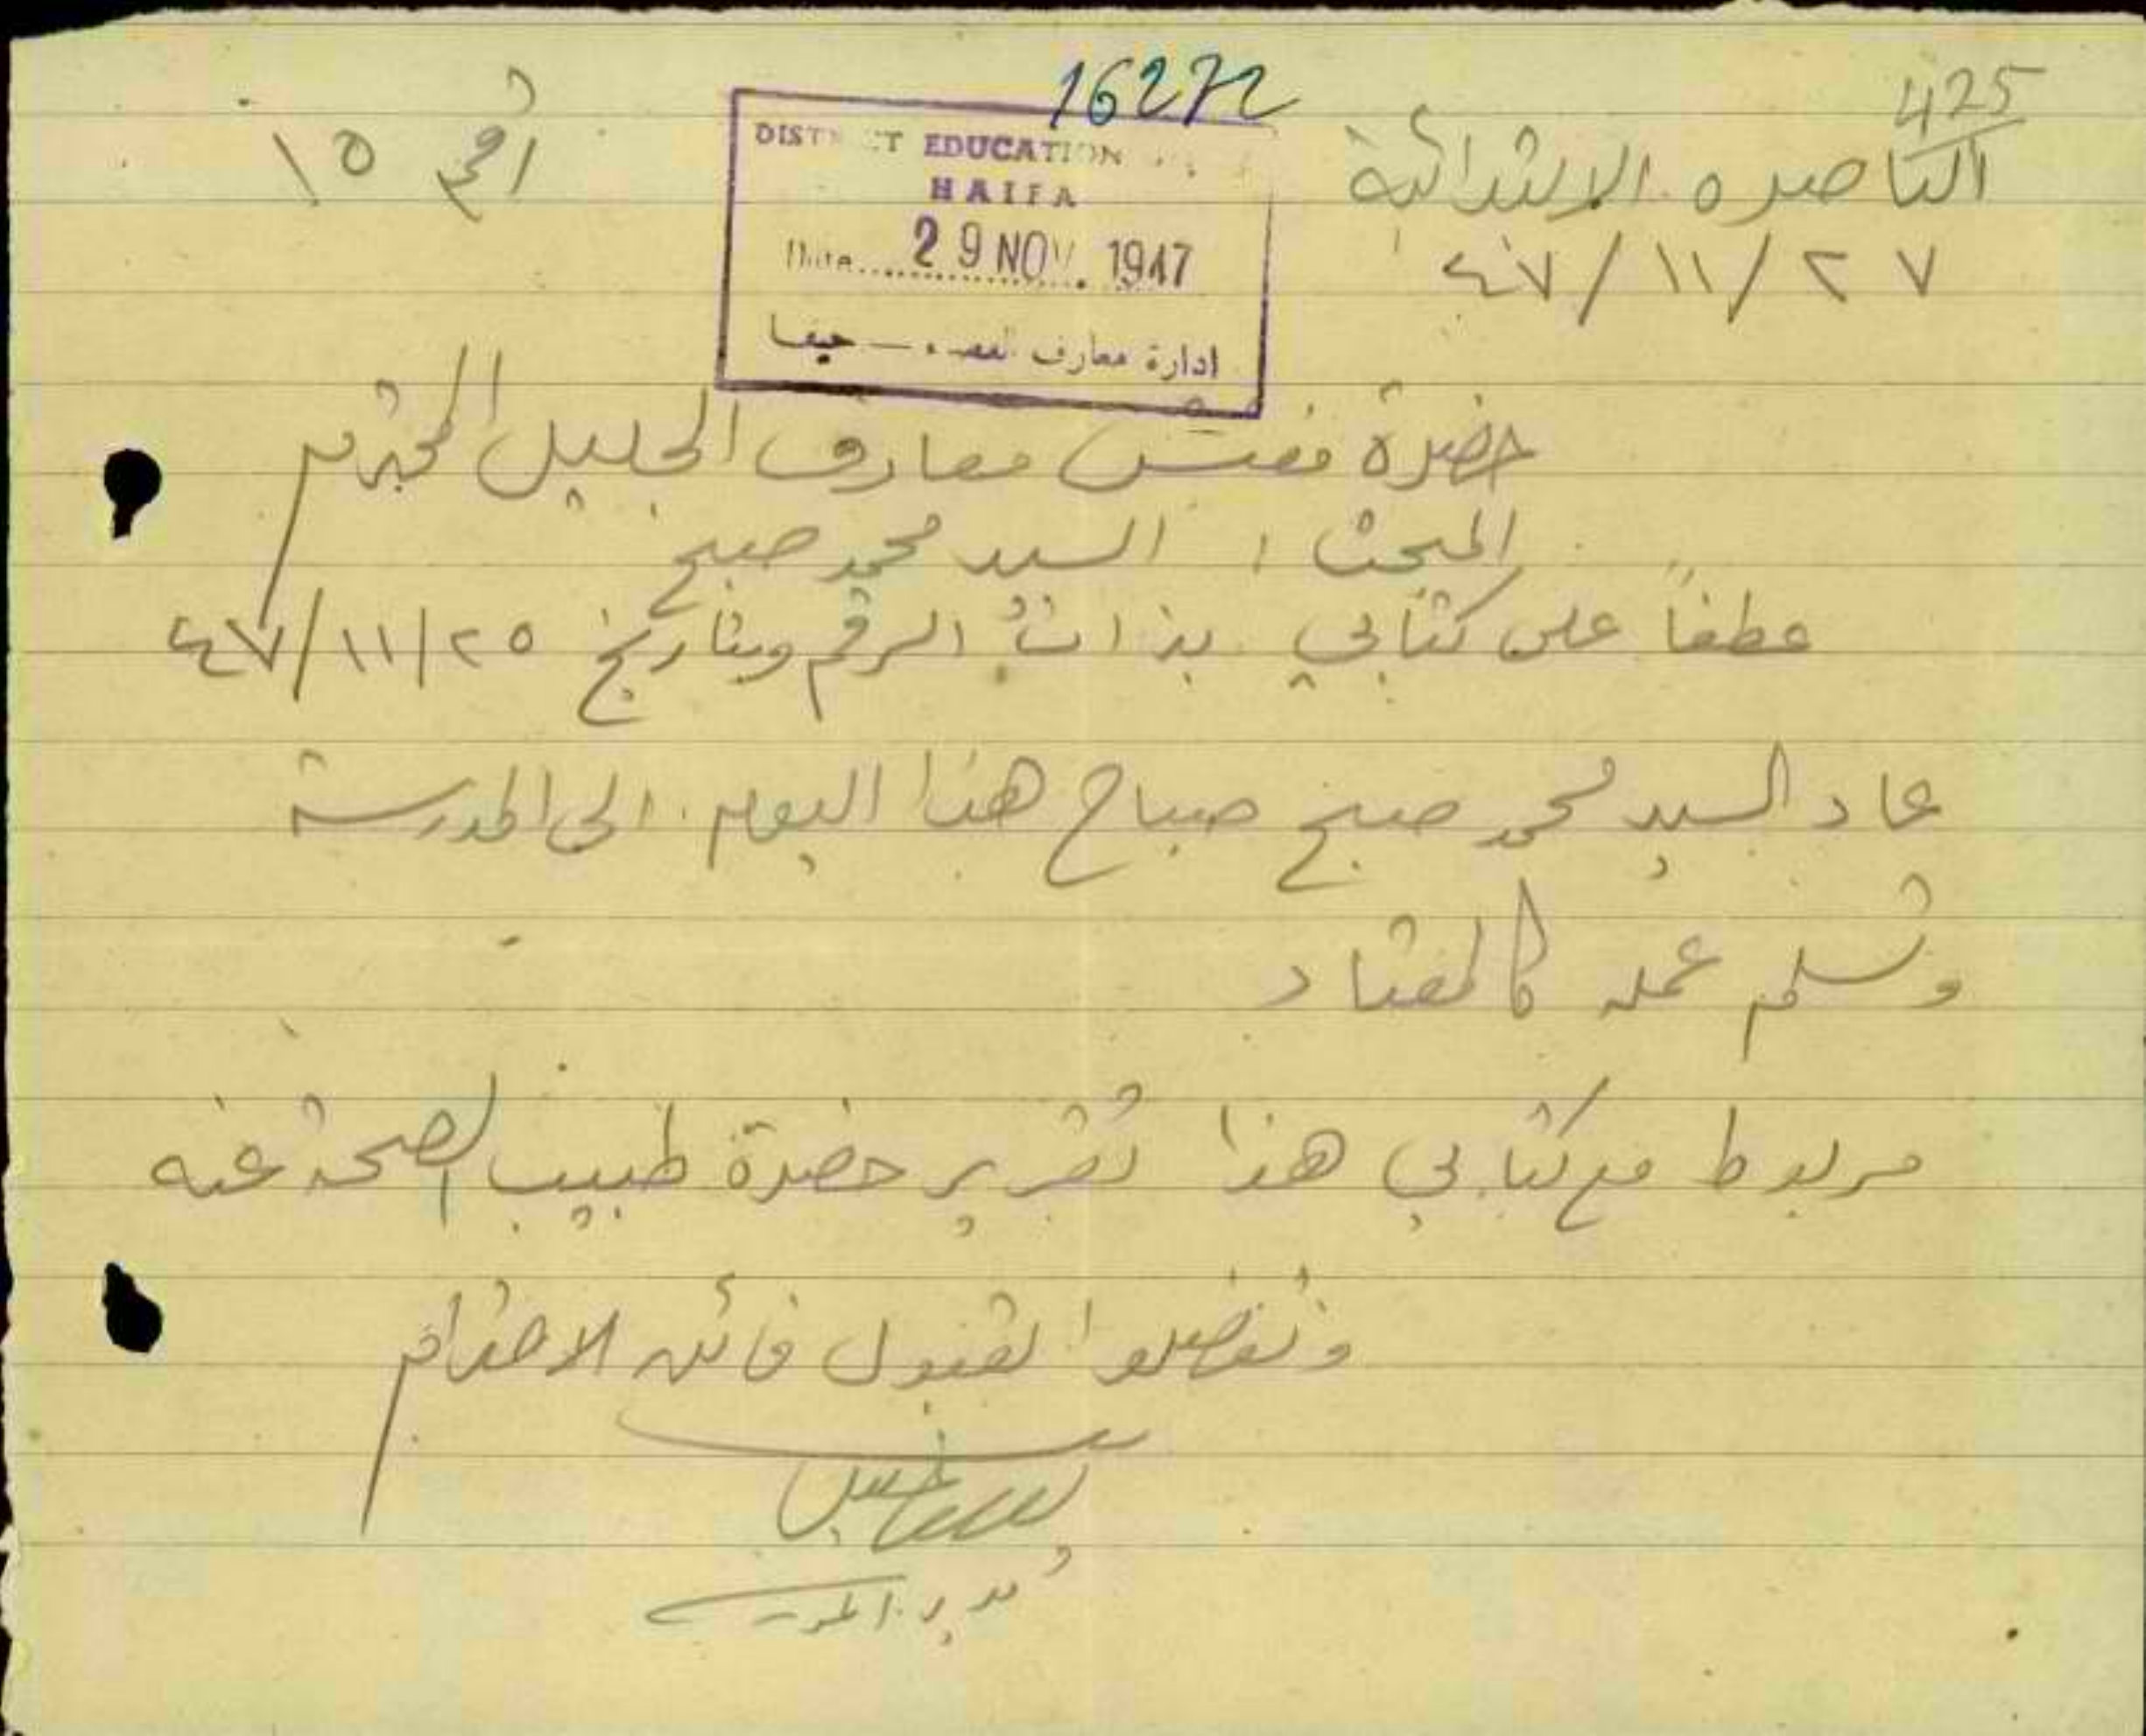 425
16272
الناصره الابتدائية
أ ق م ١٥
٢٧/١١/٤٧
EDUCATION
HAIFA
Date 29 NOV. 1947
ادارة معارف حيفا
حضرة مفتش معارف الجليل المحترم
المبحث : السيد محمد صبح
عطفاً على كتابي بذات الرقم وبتاريخ ٢٥/١١/٤٧
عاد السيد محمد صبح صباح هذا اليوم الى المدرسة
وتسلم عمله كالمعتاد
مربوط مع كتابي هذا تقرير حضرة طبيب الصحة عنه
وتفضلوا بقبول فائق الاحترام
مدير المدرسة